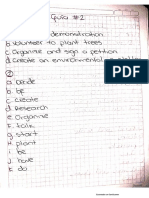 Guía #2
demonstration
b. Volunteer to plant trees
c. Organise and sign a petition
d. Create an environmental
②
a. Decide
b. be
c. Create
d. Research
e. Organise
f. talk
g. start
H. plant
i. be
J. have
K. do